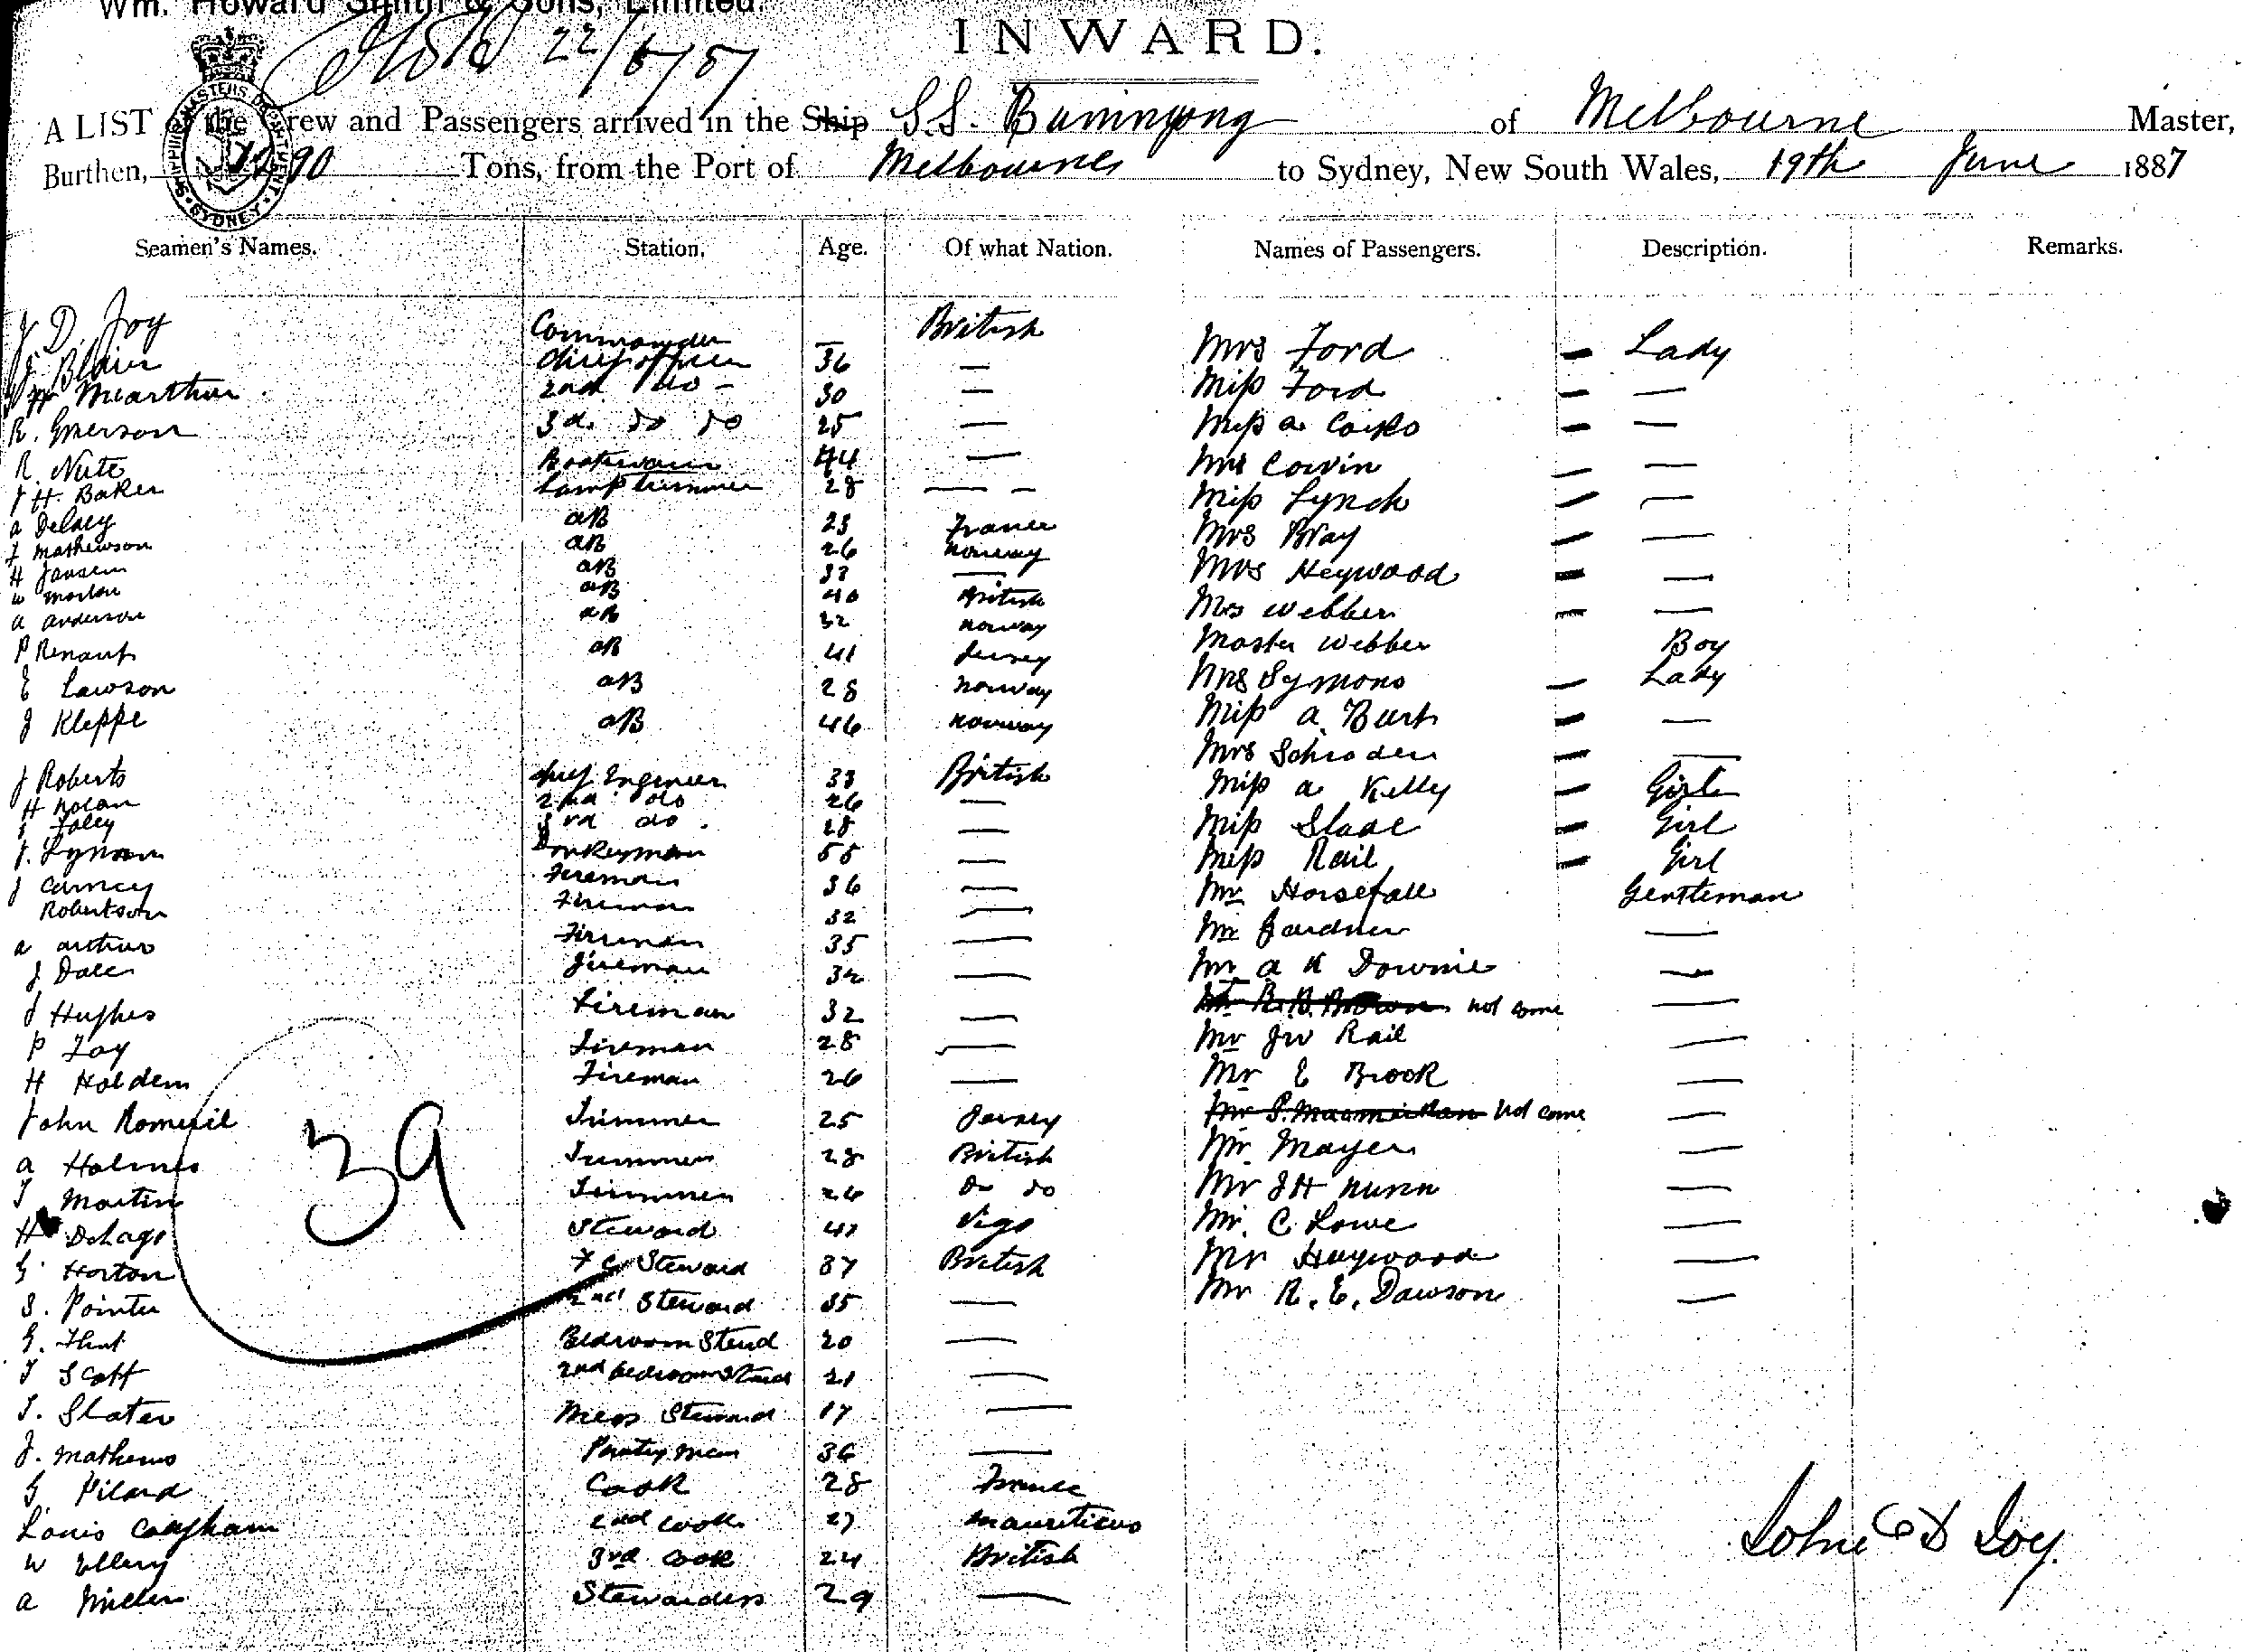 Wm. Howard Smith & Sons, Limited.
INWARD.
22/6/87
A LIST of the Crew and Passengers arrived in the Ship S.S. Buninyong of Melbourne Master,
Burthen, Tons, from the Port of Melbourne to Sydney, New South Wales, 19th June 1887
Seamen's Names. Station. Age. Of what Nation. Names of Passengers. Description. Remarks.
J. D. Joy Commander — British Mrs Ford — Lady
J. Blair Chief officer 36 — Miss Ford — —
McArthur 2nd do — 30 — Miss a — —
R. Emerson 3d. do do 25 — Mrs Corvin — —
R. Nute Boatswain 44 — Miss Lynch — —
J H. Baker Lamp trimmer 28 — — Mrs Bray — —
a Delacy aB 23 France Mrs Heywood — —
J Mathewson aB 26 Norway Mrs Webber — —
H Jansen aB 33 — Master Webber Boy
W Morton aB 40 British Mrs Symons — Lady
a anderson aB 32 Norway Miss a. Burt — —
P Renauf aB 41 Jersey Mrs Schroder — —
E Lawson aB 28 Norway Miss a Kelly — Girl
J Kleppe aB 46 Norway Miss Slade — Girl
J Roberts Chief Engineer 33 British Miss Rail — Girl
H Nolan 2nd do 26 — Mr Horsefall Gentleman
J Foley 3rd do. 28 — Mr Gardner —
J. Lynam Donkeyman 55 — Mr a K Downie —
J Carney Fireman 36 — Mr R. B. Brown not come —
Robertson Fireman 32 — Mr JW Rail —
a arthur Fireman 35 — Mr E Brook —
J Dale Fireman 32 — Mr P. not come —
J Hughes Fireman 32 — Mr Mayer —
P Foy Fireman 28 — Mr J H Nunn —
H Holdem Fireman 26 — Mr. C. Lowe —
John Romeril Trimmer 25 Jersey Mr Haywood —
a Holmes Trimmer 28 British Mr R. E. Dawson —
T Martin Trimmer 26 Do do
H Delago Steward 41 Vigo
G. Horton F C Steward 37 British
S. Pointer 2nd Steward 35 —
G. Flint Bedroom Steud 20 —
T Scott 2nd Bedroom Steud 21 —
T. Slater Mess Steward 17 —
J. Mathews Pantryman 36 —
G. Pilard Cook 28 France
Louis 2nd cook 27 Mauritius
W Ellery 3rd cook 24 British
a Miller Stewardess 29 —
39
John D Joy.